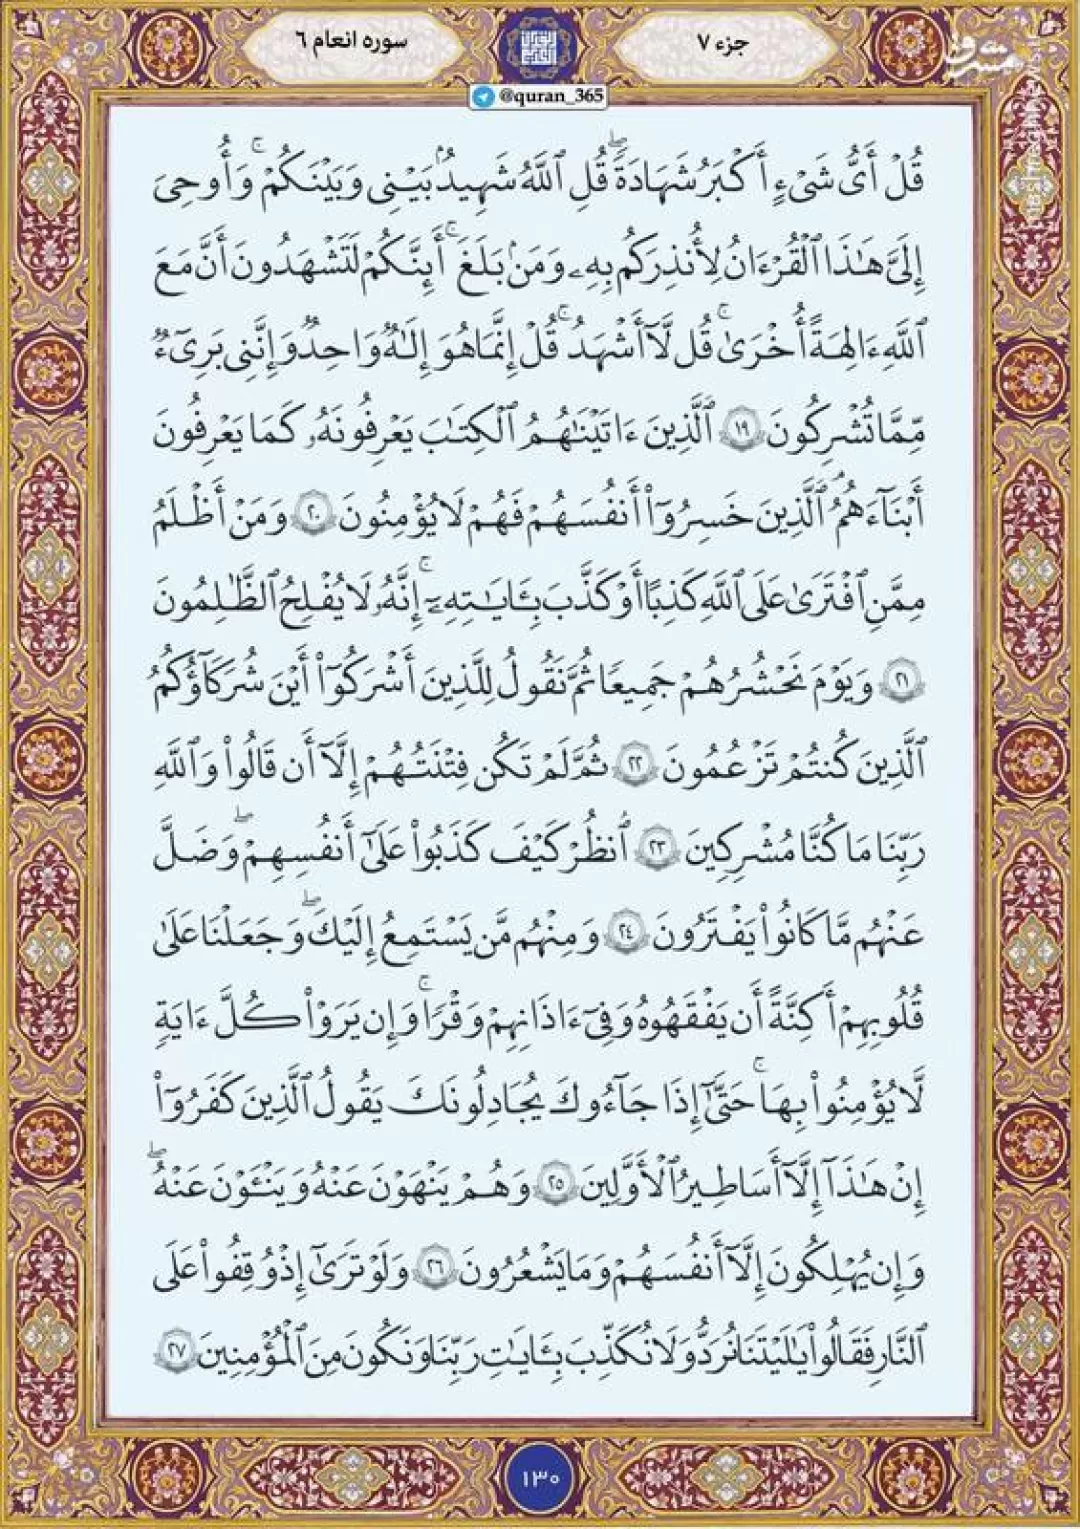 جزء ۷
سوره انعام ۶
@quran_365
مشرق
قُلْ أَىُّ شَىْءٍ أَكْبَرُ شَهَادَةً ۖ قُلِ ٱللَّهُ شَهِيدٌۢ بَيْنِى وَبَيْنَكُمْ ۚ وَأُوحِىَ
إِلَىَّ هَـٰذَا ٱلْقُرْءَانُ لِأُنذِرَكُم بِهِۦ وَمَنۢ بَلَغَ ۚ أَئِنَّكُمْ لَتَشْهَدُونَ أَنَّ مَعَ
ٱللَّهِ ءَالِهَةً أُخْرَىٰ ۚ قُل لَّآ أَشْهَدُ ۚ قُلْ إِنَّمَا هُوَ إِلَـٰهٌ وَاحِدٌ وَإِنَّنِى بَرِىٓءٌ
مِّمَّا تُشْرِكُونَ ۱۹ ٱلَّذِينَ ءَاتَيْنَـٰهُمُ ٱلْكِتَـٰبَ يَعْرِفُونَهُۥ كَمَا يَعْرِفُونَ
أَبْنَآءَهُمُ ۘ ٱلَّذِينَ خَسِرُوٓا۟ أَنفُسَهُمْ فَهُمْ لَا يُؤْمِنُونَ ۲۰ وَمَنْ أَظْلَمُ
مِمَّنِ ٱفْتَرَىٰ عَلَى ٱللَّهِ كَذِبًا أَوْ كَذَّبَ بِـَٔايَـٰتِهِۦٓ ۚ إِنَّهُۥ لَا يُفْلِحُ ٱلظَّـٰلِمُونَ
۲۱ وَيَوْمَ نَحْشُرُهُمْ جَمِيعًا ثُمَّ نَقُولُ لِلَّذِينَ أَشْرَكُوٓا۟ أَيْنَ شُرَكَآؤُكُمُ
ٱلَّذِينَ كُنتُمْ تَزْعُمُونَ ۲۲ ثُمَّ لَمْ تَكُن فِتْنَتُهُمْ إِلَّآ أَن قَالُوا۟ وَٱللَّهِ
رَبِّنَا مَا كُنَّا مُشْرِكِينَ ۲۳ ٱنظُرْ كَيْفَ كَذَبُوا۟ عَلَىٰٓ أَنفُسِهِمْ ۖ وَضَلَّ
عَنْهُم مَّا كَانُوا۟ يَفْتَرُونَ ۲۴ وَمِنْهُم مَّن يَسْتَمِعُ إِلَيْكَ ۖ وَجَعَلْنَا عَلَىٰ
قُلُوبِهِمْ أَكِنَّةً أَن يَفْقَهُوهُ وَفِىٓ ءَاذَانِهِمْ وَقْرًا ۚ وَإِن يَرَوْا۟ كُلَّ ءَايَةٍ
لَّا يُؤْمِنُوا۟ بِهَا ۚ حَتَّىٰٓ إِذَا جَآءُوكَ يُجَـٰدِلُونَكَ يَقُولُ ٱلَّذِينَ كَفَرُوٓا۟
إِنْ هَـٰذَآ إِلَّآ أَسَاطِيرُ ٱلْأَوَّلِينَ ۲۵ وَهُمْ يَنْهَوْنَ عَنْهُ وَيَنْـَٔوْنَ عَنْهُ ۖ
وَإِن يُهْلِكُونَ إِلَّآ أَنفُسَهُمْ وَمَا يَشْعُرُونَ ۲۶ وَلَوْ تَرَىٰٓ إِذْ وُقِفُوا۟ عَلَى
ٱلنَّارِ فَقَالُوا۟ يَـٰلَيْتَنَا نُرَدُّ وَلَا نُكَذِّبَ بِـَٔايَـٰتِ رَبِّنَا وَنَكُونَ مِنَ ٱلْمُؤْمِنِينَ ۲۷
۱۳۰